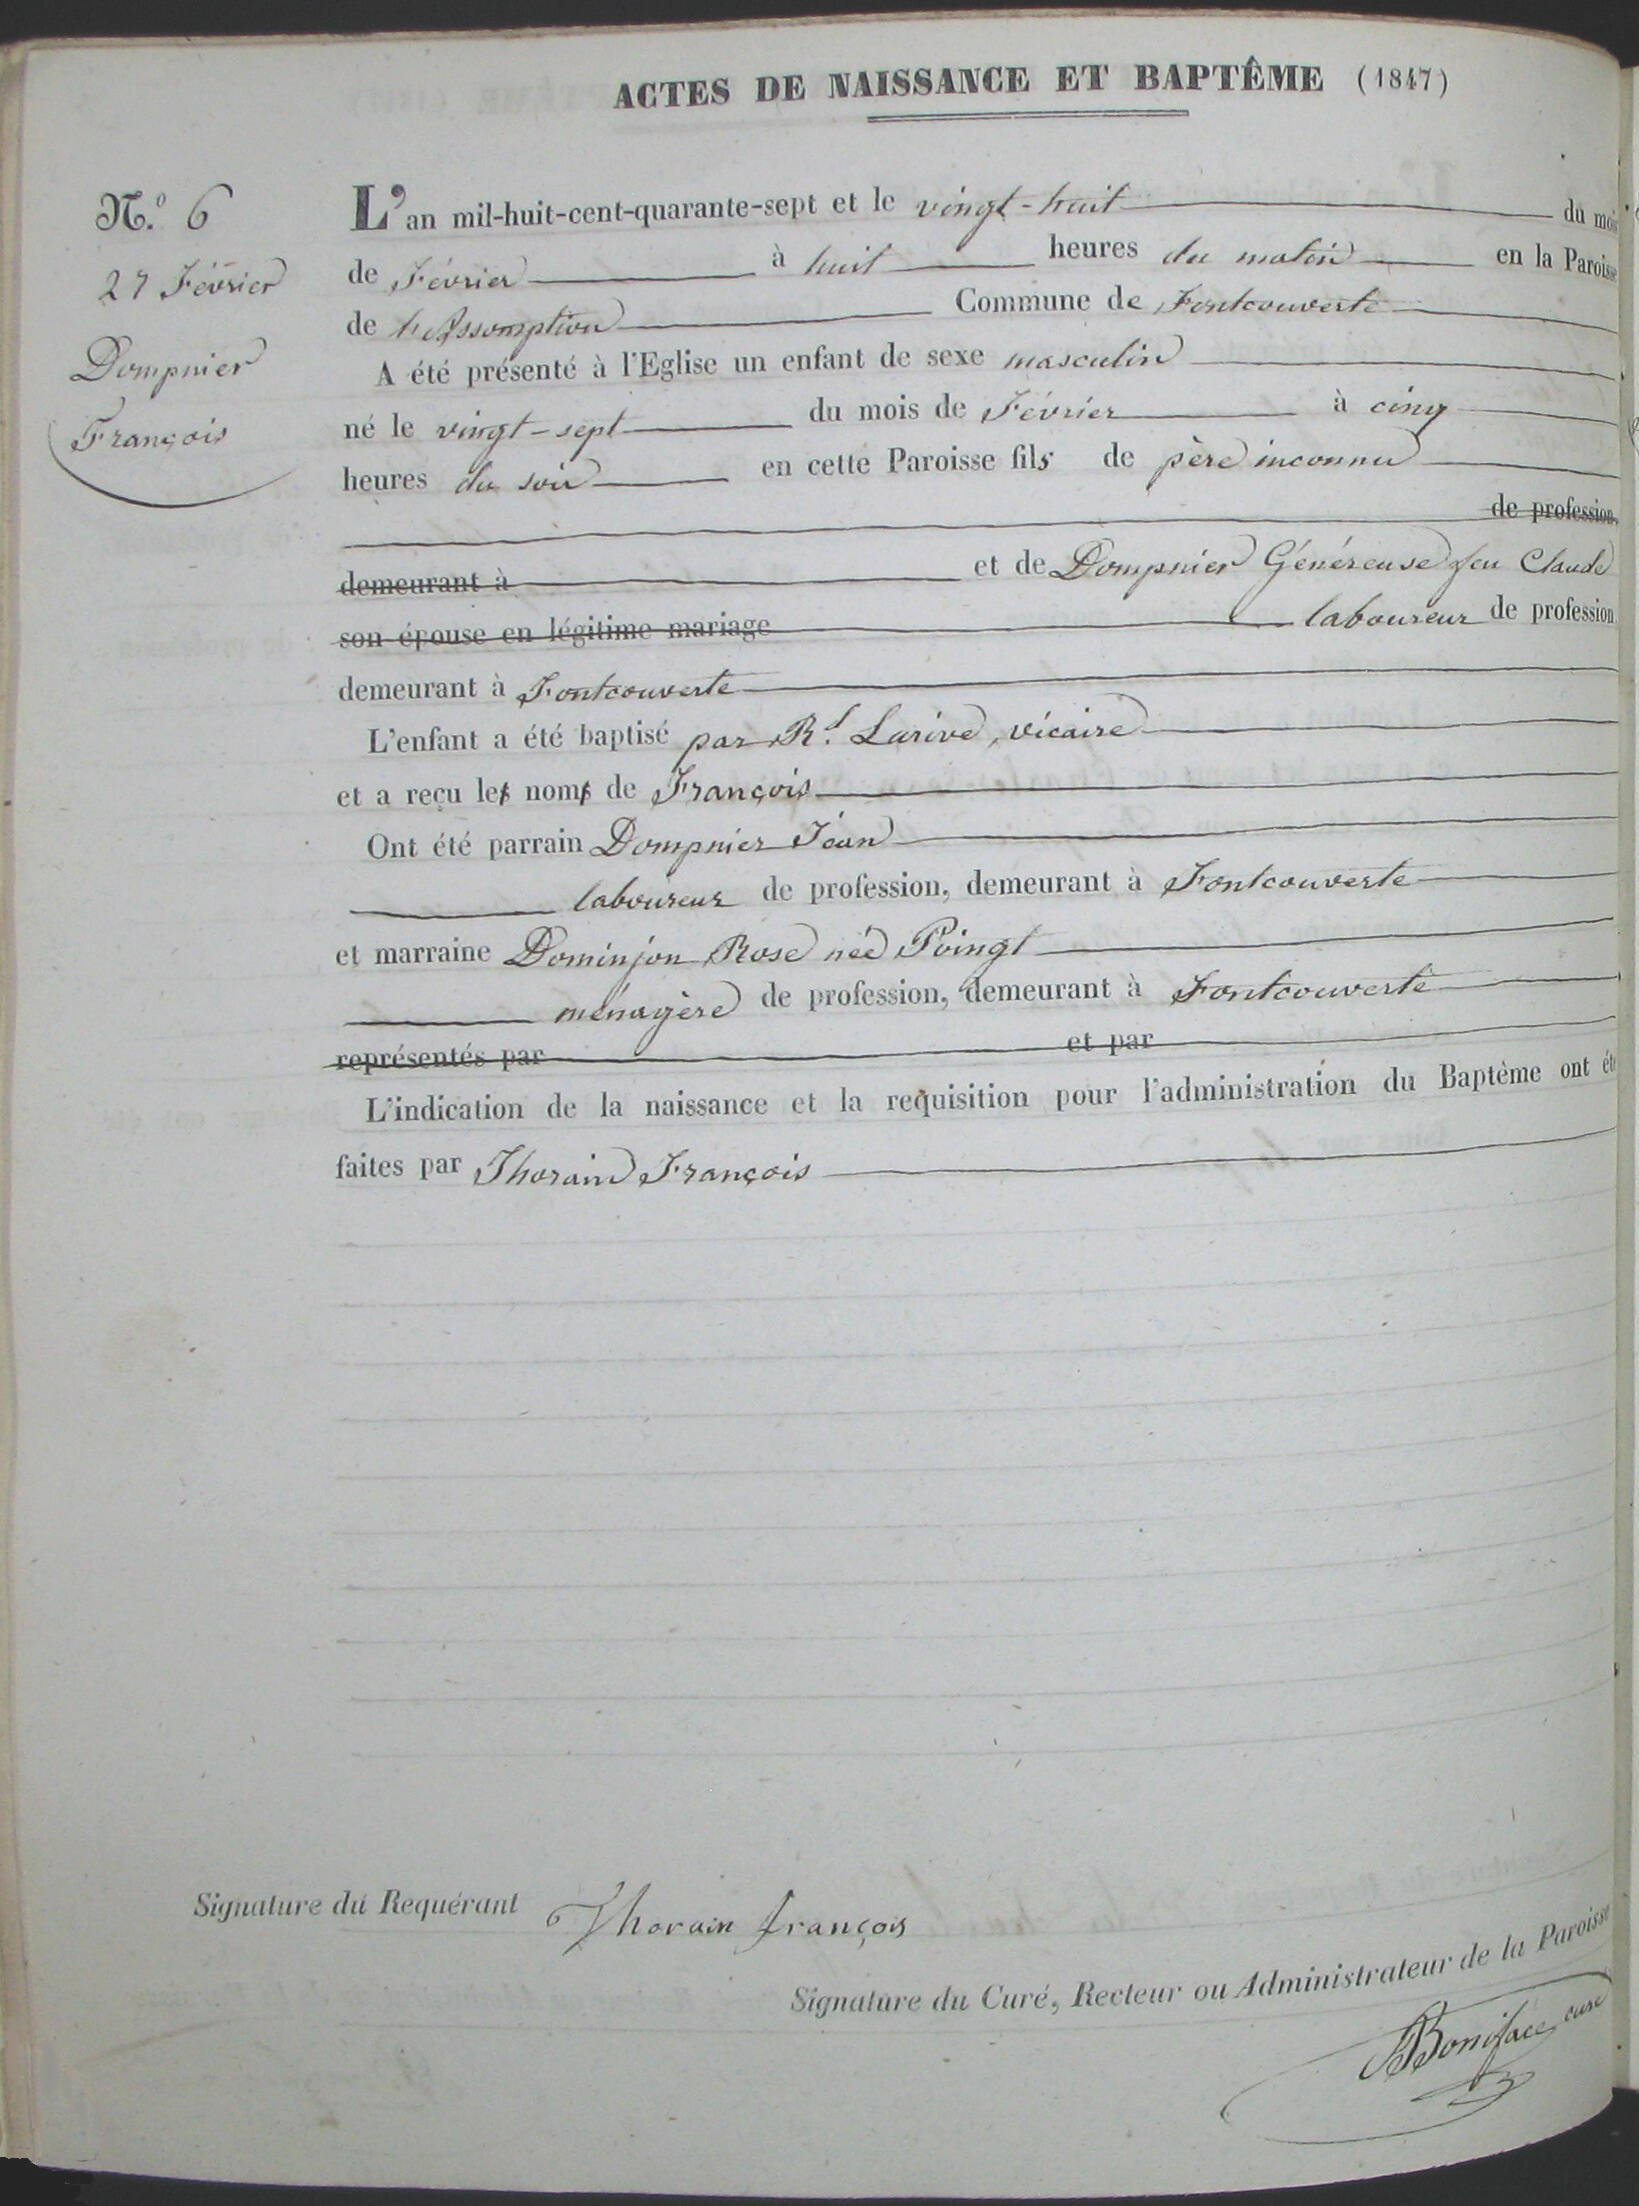 ACTES DE NAISSANCE ET BAPTÊME (1847)
N.º 6
27 Février
Dompnier
François
L'an mil-huit-cent-quarante-sept et le vingt-huit du mois
de Février à huit heures du matin en la Paroisse
de l'Assomption Commune de Fontcouverte
A été présenté à l'Eglise un enfant de sexe masculin
né le vingt-sept du mois de Février à cinq
heures du soir en cette Paroisse fils de père inconnu
de profession,
demeurant à et de Dompnier Généreuse feu Claude
son épouse en légitime mariage laboureur de profession
demeurant à Fontcouverte
L'enfant a été baptisé par R.d Larive, vicaire
et a reçu les noms de François
Ont été parrain Dompnier Jean
laboureur de profession, demeurant à Fontcouverte
et marraine Dominjon Rose née Poingt
ménagère de profession, demeurant à Fontcouverte
représentés par et par
L'indication de la naissance et la requisition pour l'administration du Baptème ont été
faites par Thorain François
Signature du Requérant Thorain françois
Signature du Curé, Recteur ou Administrateur de la Paroisse
Boniface curé